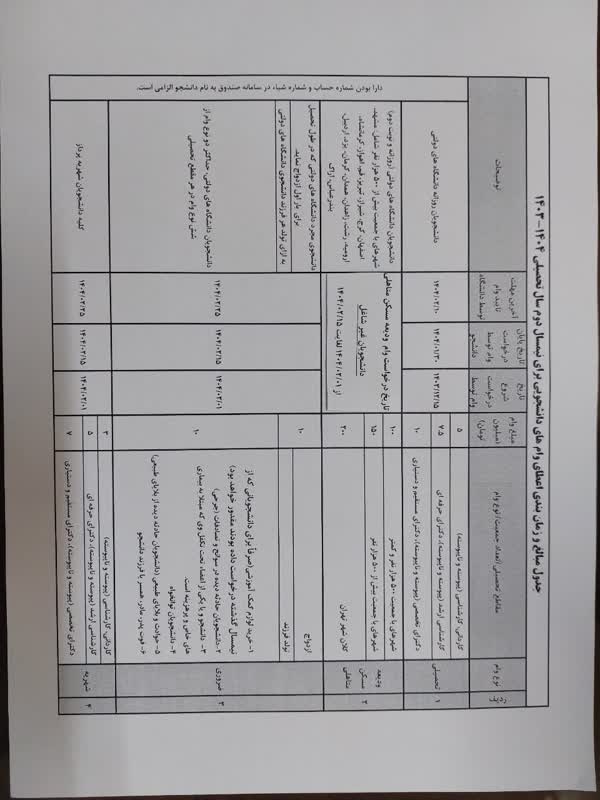 جدول مبالغ و زمان بندی اعطای وام های دانشجویی برای نیمسال دوم سال تحصیلی ۱۴۰۴-۱۴۰۳
ردیف
نوع وام
مقاطع تحصیلی/تعداد جمعیت/نوع وام
مبلغ وام
(میلیون
تومان)
تاریخ
شروع
درخواست
وام توسط
تاریخ پایان
درخواست
وام توسط
دانشجو
آخرین مهلت
تایید وام
توسط دانشگاه
توضیحات
۱
تحصیلی
کاردانی، کارشناسی (پیوسته و ناپیوسته)
۵
کارشناسی ارشد (پیوسته و ناپیوسته)، دکترای حرفه ای
۷.۵
دکترای تخصصی (پیوسته و ناپیوسته)، دکترای مستقیم و دستیاری
۱۰
۱۴۰۳/۱۲/۱۵
۱۴۰۴/۰۱/۳۰
۱۴۰۴/۰۲/۱۰
دانشجویان روزانه دانشگاه های دولتی
۲
ودیعه
مسکن
متاهلی
شهرهای با جمعیت ۵۰۰ هزار نفر و کمتر
۱۰۰
شهرهای با جمعیت بیش از ۵۰۰ هزار نفر
۱۵۰
کلان شهر تهران
۲۰۰
تاریخ درخواست وام ودیعه مسکن متاهلی
دانشجویان غیر شاغل
از ۱۴۰۴/۰۲/۰۱ لغایت ۱۴۰۴/۰۲/۱۵
دانشجویان دانشگاه های دولتی (روزانه و نوبت دوم)
شهرهای با جمعیت بیش از ۵۰۰ هزار نفر شامل: مشهد،
اصفهان، کرج، شیراز، تبریز، قم، اهواز، کرمانشاه،
ارومیه، رشت، زاهدان، همدان، کرمان، یزد، اردبیل،
بندرعباس، اراک
۳
ضروری
ازدواج
تولد فرزند
۱۰
دانشجوی مجرد دانشگاه های دولتی که در طول تحصیل
برای بار اول ازدواج نماید.
به ازای تولد هر فرزند دانشجوی دانشگاه های دولتی
۱- خرید لوازم کمک آموزشی(صرفاً برای دانشجویانی که از
نیمسال گذشته درخواست داده بودند مقدور خواهد بود)
۲-دانشجویان حادثه دیده در سوانح و تصادفات (جرحی)
۳- دانشجو و یا یکی از اعضاء تحت تکفل وی که مبتلا به بیماری
های خاص و پرهزینه است.
۴- دانشجویان توانخواه
۵- حوادث و بلایای طبیعی (دانشجویان حادثه دیده از بلایای طبیعی)
۶- فوت پدر، مادر، همسر یا فرزند دانشجو
۱۰
۱۴۰۴/۰۲/۰۱
۱۴۰۴/۰۲/۱۵
۱۴۰۴/۰۲/۲۵
دانشجویان دانشگاه های دولتی، حداکثر دو نوع وام از
شش نوع وام در هر مقطع تحصیلی
۴
شهریه
کاردانی، کارشناسی (پیوسته و ناپیوسته)
۳
کارشناسی ارشد (پیوسته و ناپیوسته)، دکترای حرفه ای
۵
دکترای تخصصی (پیوسته و ناپیوسته)، دکترای مستقیم و دستیاری
۷
۱۴۰۴/۰۲/۰۱
۱۴۰۴/۰۲/۱۵
۱۴۰۴/۰۲/۲۵
کلیه دانشجویان شهریه پرداز
دارا بودن شماره حساب و شماره شباء در سامانه صندوق به نام دانشجو الزامی است.